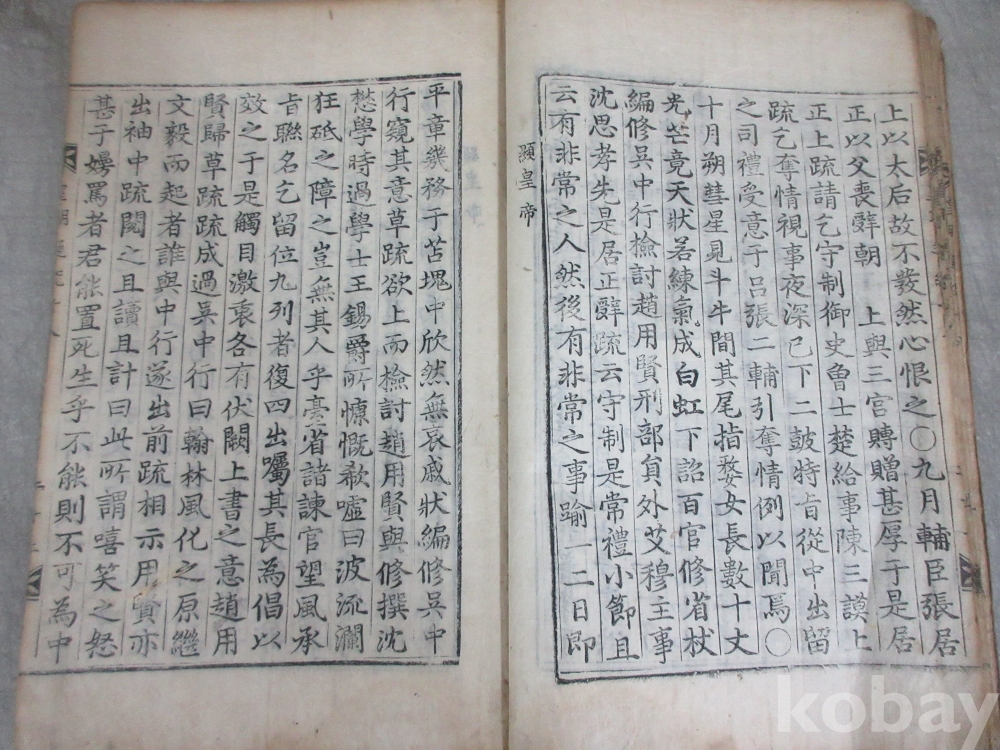 上以太后故不發然心恨之〇九月輔臣張居
正以父喪辭朝 上與三宮賻贈甚厚于是居
正上疏請乞守制御史曾士楚給事陳三謨上
疏乞奪情視事夜深已下二鼓特旨從中出留
之司禮受意于呂張二輔引奪情例以聞焉〇
十月朔彗星見斗牛間其尾指婺女長數十丈
光芒竟天狀若練氣成白虹下詔百官修省杖
編修吳中行檢討趙用賢刑部員外艾穆主事
沈思孝先是居正辭疏云守制是常禮小節且
云有非常之人然後有非常之事踰一二日即
顯皇帝
平章幾務于苫塊中欣然無哀戚狀編修吳中
行窺其意草疏欲上而檢討趙用賢與修撰沈
懋學時過學士王錫爵所慷慨欷噓曰波流瀾
狂砥之障之豈無其人乎臺省諸諫官望風承
旨聯名乞留位九列者復四出囑其長為倡以
效之于是觸目激衷各有伏闕上書之意趙用
賢歸草疏疏成過吳中行曰翰林風化之原繼
文毅而起者誰與中行遂出前疏相示用賢亦
出袖中疏閱之且讀且計曰此所謂嘻笑之怒
甚于嫚罵者君能置死生乎不能則不可為中
kobay